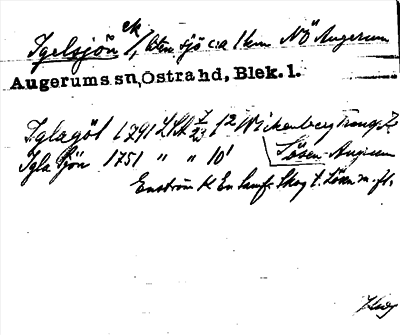 Igelsjön ek /, liten sjö c:a 1 km NÖ Augerum
Augerums sn, Östra hd, Blek. l.
Iglagöl 1791 LSA 7/23 12 Wickenberg
Igla Sjön 1751 " " 10 Lösen - Augerum
Enström K En Skog t. Lösen m. fl.